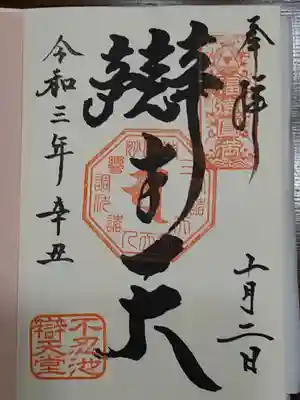 奉拝
十月二日
辯才天
令和三年辛丑
不忍池
辯天堂